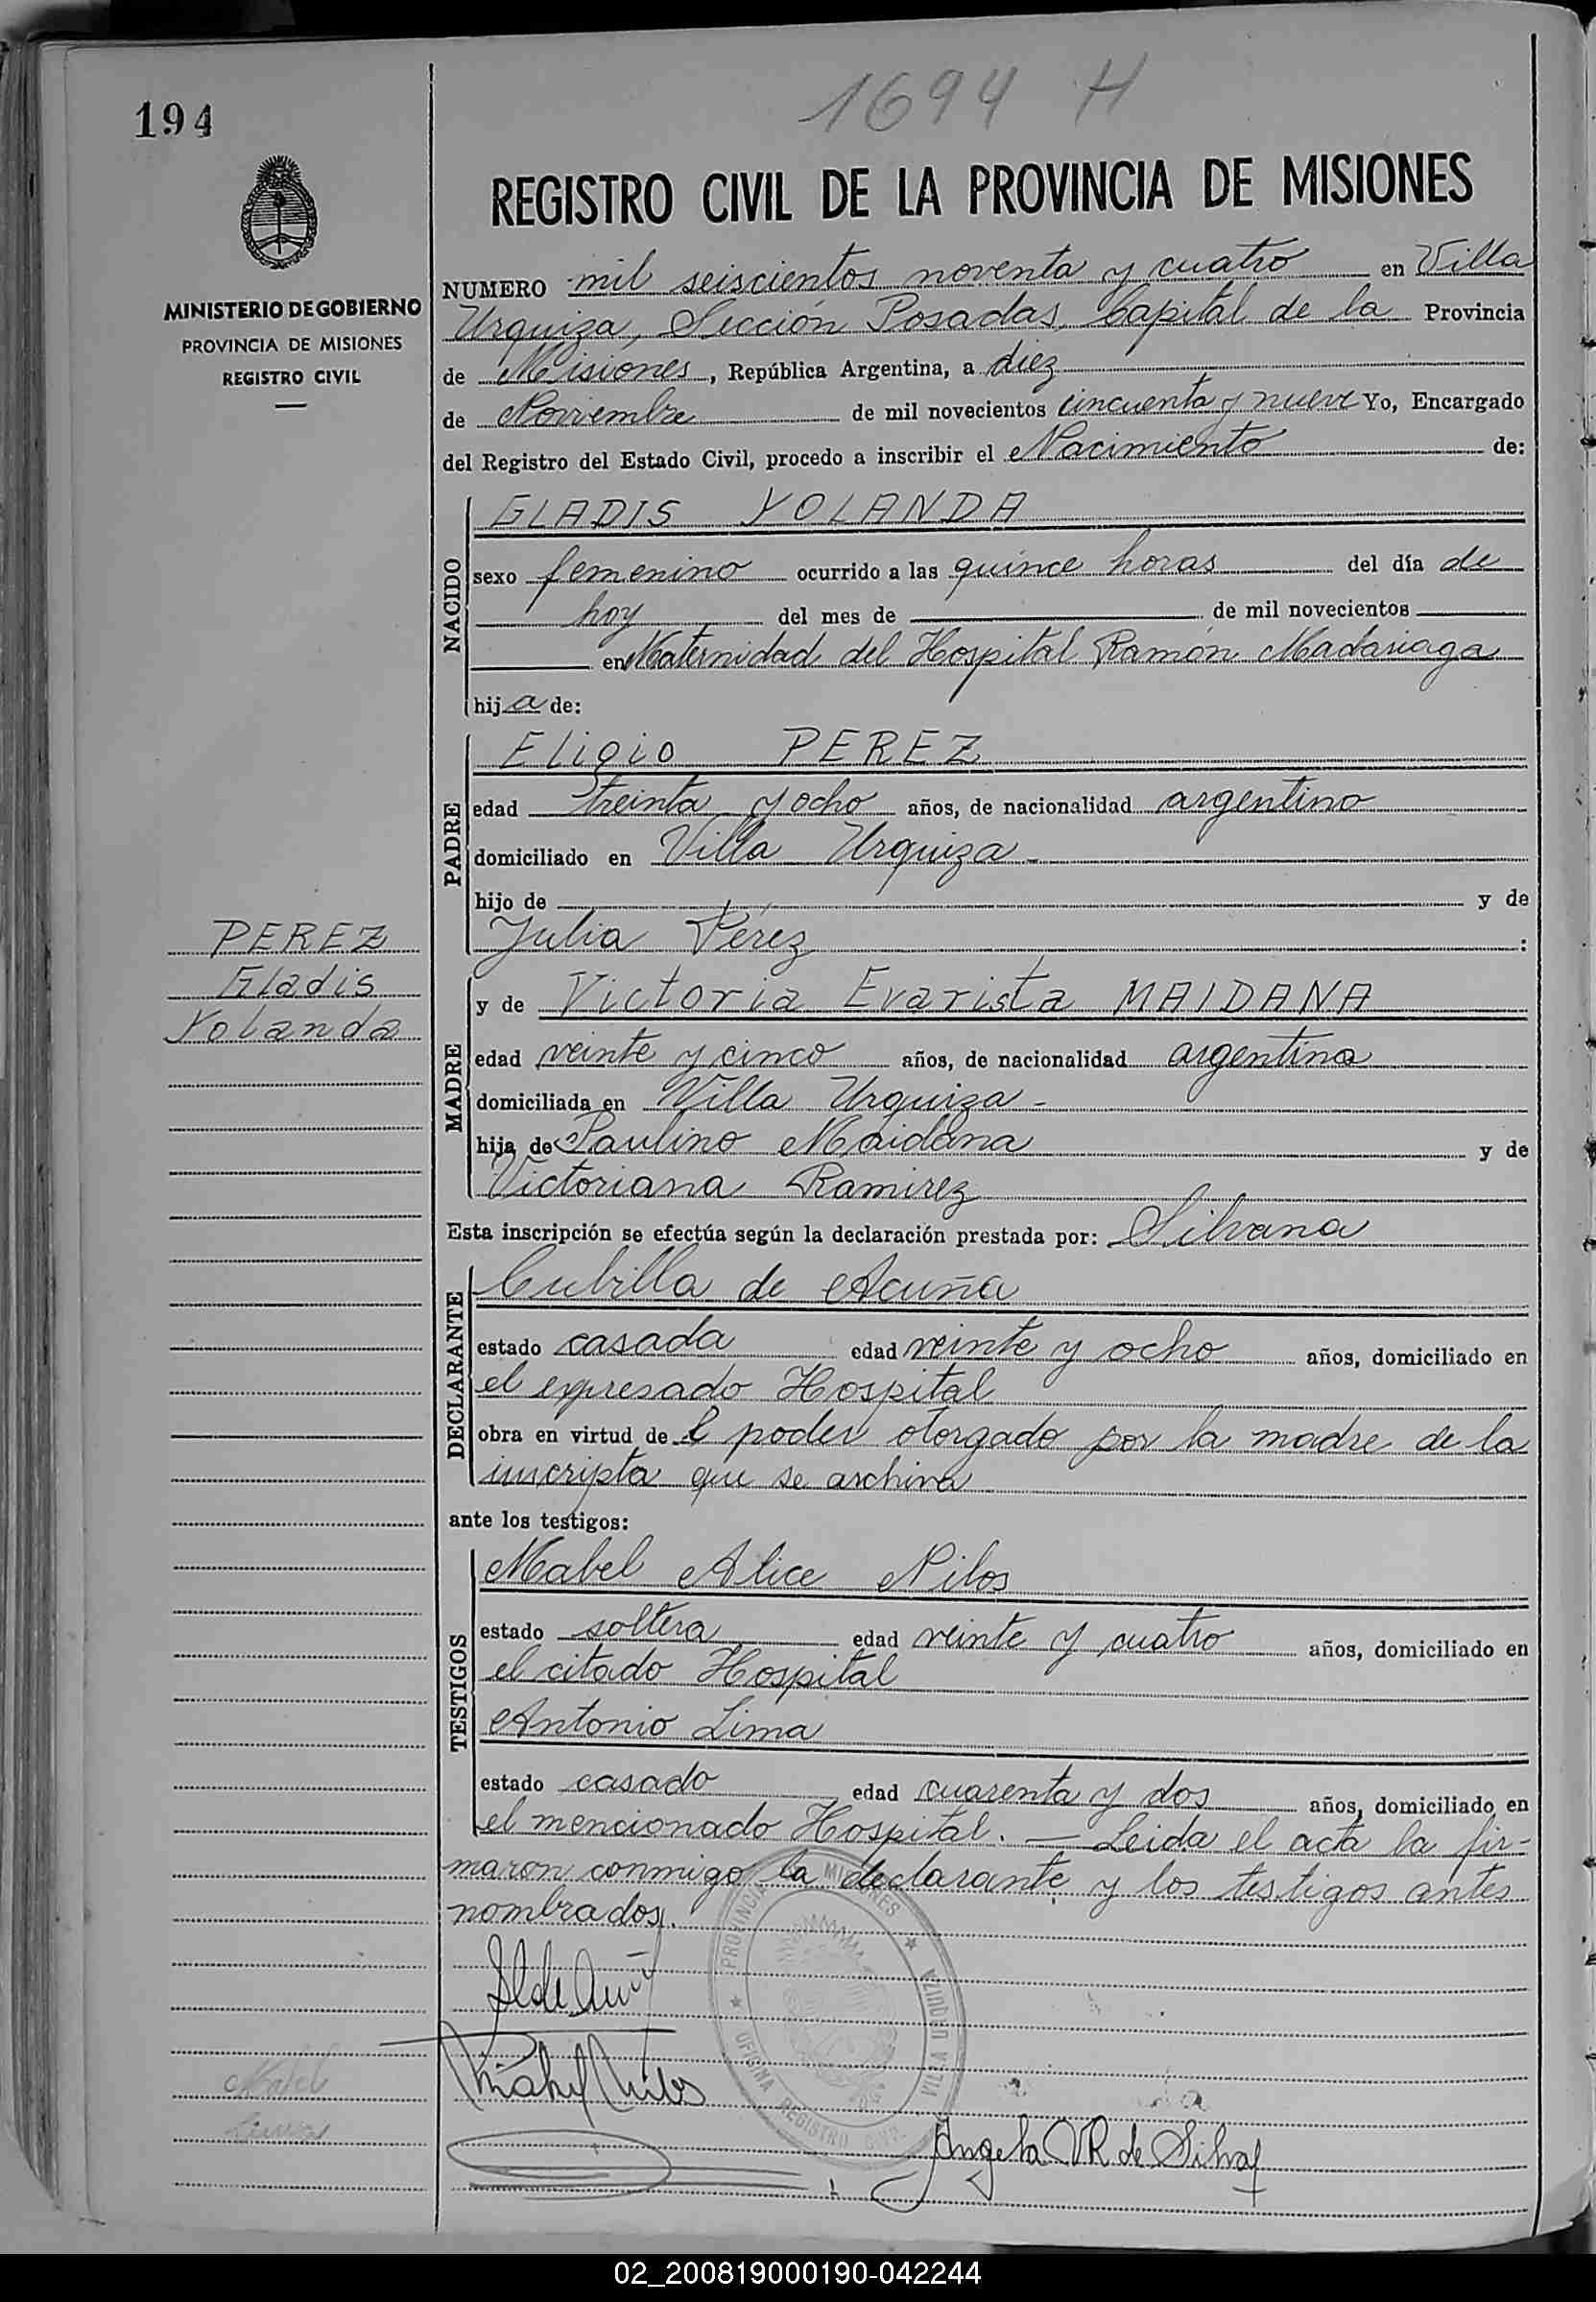 194
1694 H
MINISTERIO DE GOBIERNO
PROVINCIA DE MISIONES
REGISTRO CIVIL
REGISTRO CIVIL DE LA PROVINCIA DE MISIONES
NUMERO mil seiscientos noventa y cuatro en Villa
Urquiza, Sección Posadas, Capital de la Provincia
de Misiones, República Argentina, a diez
de Noviembre de mil novecientos cincuenta y nueve Yo, Encargado
del Registro del Estado Civil, procedo a inscribir el Nacimiento de:
NACIDO
GLADIS YOLANDA
sexo femenino ocurrido a las quince horas del día de
hoy del mes de de mil novecientos
en Maternidad del Hospital Ramón Madariaga
hija de:
PADRE
Eligio PEREZ
edad treinta y ocho años, de nacionalidad argentino
domiciliado en Villa Urquiza -
hijo de y de
Julia Pérez :
PEREZ
Gladis
Yolanda
MADRE
y de Victoria Evarista MAIDANA
edad veinte y cinco años, de nacionalidad argentina
domiciliada en Villa Urquiza -
hija de Paulino Maidana y de
Victoriana Ramirez
Esta inscripción se efectúa según la declaración prestada por: Silvana
DECLARANTE
Cubilla de Acuña
estado casada edad veinte y ocho años, domiciliado en
el expresado Hospital
obra en virtud de l poder otorgado por la madre de la
inscripta que se archiva
ante los testigos:
TESTIGOS
Mabel Alice Nilos
estado soltera edad veinte y cuatro años, domiciliado en
el citado Hospital
Antonio Lima
estado casado edad cuarenta y dos años, domiciliado en
el mencionado Hospital. — Leida el acta la fir-
maron conmigo la declarante y los testigos antes
nombrados.
PROVINCIA MISIONES ★ VILLA URQUIZA
★ OFICINA REGISTRO CIVIL
S C de Acuña
Mabel Nilos
Angela V R de Silva
02_200819000190-042244